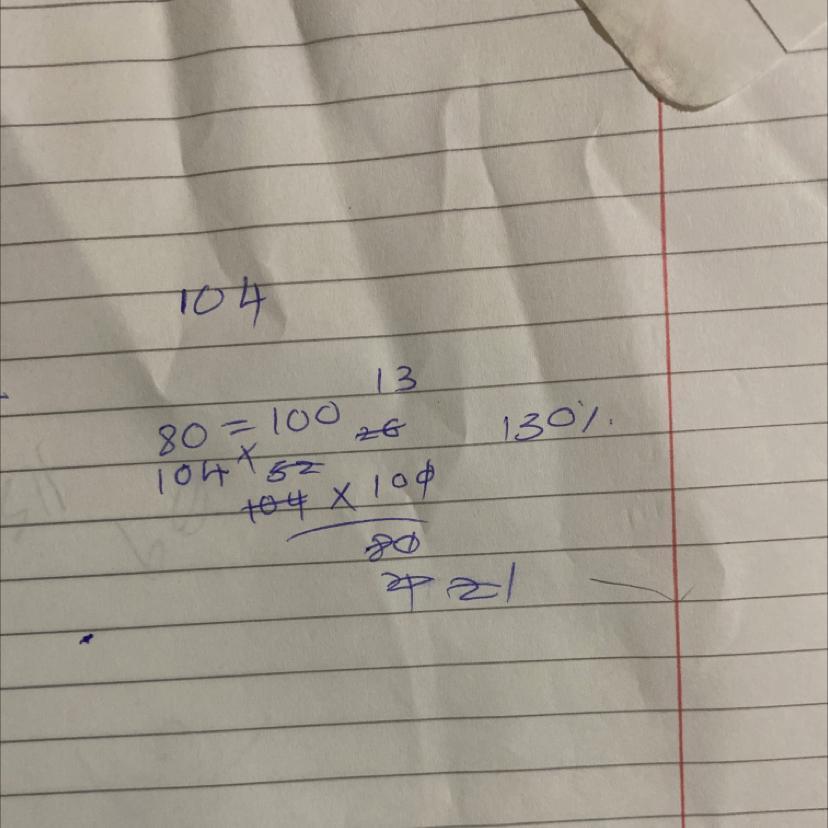 104
13
80 = 100 26 130%
104 × 52
104 × 100
80
4 2 1